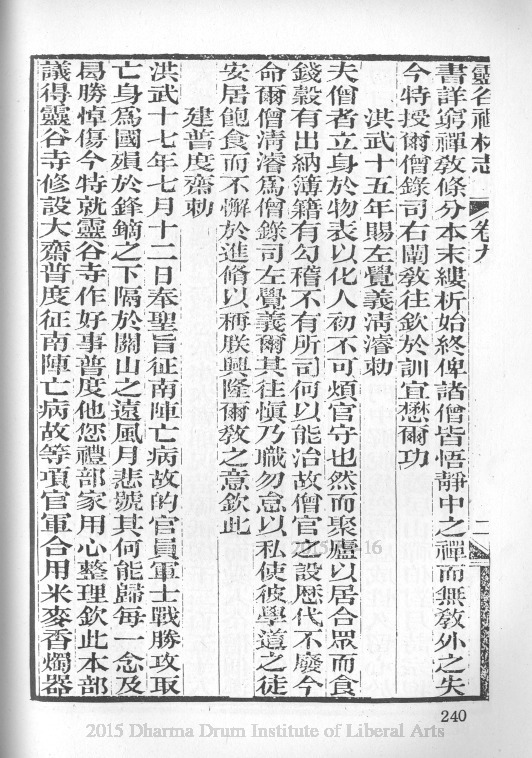 靈谷禪林志 卷九 二
書詳窮禪敎條分本末縷析始終俾諸僧皆悟靜中之禪而無敎外之失
今特授爾僧錄司右闡敎往欽於訓宜懋爾功
洪武十五年賜左覺義淸濬勅
夫僧者立身於物表以化人初不可煩官守也然而聚廬以居合眾而食
錢穀有出納簿籍有勾稽不有所司何以能治故僧官之設歷代不廢今
命爾僧淸濬爲僧錄司左覺義爾其往愼乃職勿怠以私使彼學道之徒
安居飽食而不懈於進脩以稱朕興隆爾敎之意欽此
建普度齋勅
洪武十七年七月十二日奉聖旨征南陣亡病故的官員軍士戰勝攻取
亡身爲國殞於鋒鏑之下隔於關山之遠風月悲號其何能歸每一念及
曷勝悼傷今特就靈谷寺作好事普度他您禮部家用心整理欽此本部
議得靈谷寺修設大齋普度征南陣亡病故等項官軍合用米麥香燭器
240
2015 Dharma Drum Institute of Liberal Arts